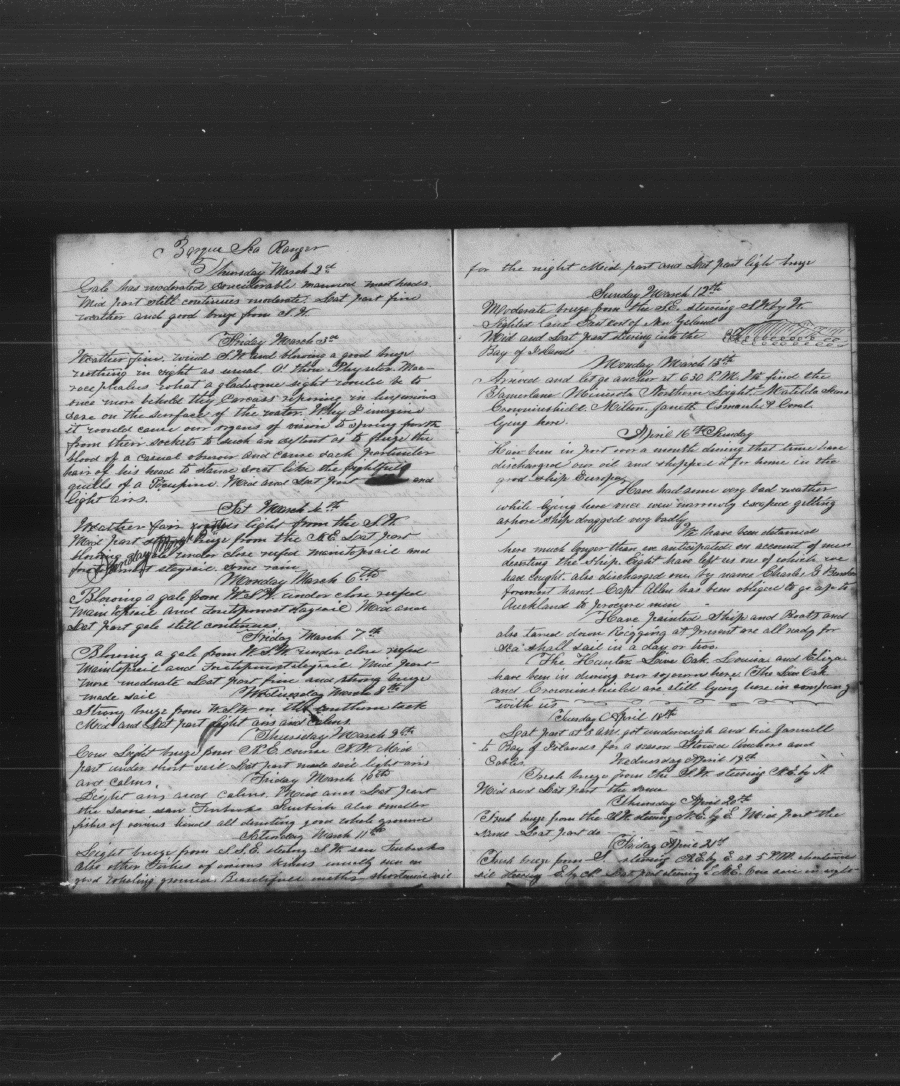 Barque Sea Ranger
Thursday March 2nd
Gale has moderated considerable manned mast heads.
Mid part still continues moderate. Last part fine
weather and good breeze from S.W.
Friday March 3rd
Weather fine. wind S.W and blowing a good breeze
nothing in sight as usual. O! thou Physiter Mac-
rocephalus what a gladsome sight would be to
once more behold thy carcass reposing in
on the surface of the water. Why I imagine
it would cause our organs of vision to spring forth
from their sockets to such an extent as to freeze the
blood of a casual observer and cause each particular
hair of his head to stand erect like the frightful
quills of a Porcupine. Mid and Last Part and
light airs.
Sat March 4th
Weather fair light from the S.W.
Mid part breeze from the N.E Last part
blowing under close reefed maintopsail and
staysail. Some rain
Sunday March 5
Monday March 6th
Blowing a gale from W.S.W. under close reefed
Maintopsail and Foretopmast staysail Mid and
Last part gale still continues.
Friday March 7th
Blowing a gale from W.S.W. under close reefed
Maintopsail and Foretopmaststaysail Mid part
more moderate Last part fine and strong breeze
made sail Wednesday March 8th
Strong breeze from W.S.W on the southern tack
Mid and Last part light airs and calms.
Thursday March 9th
Com Light breeze from N.E. course N.W. Mid
part under short sail Last part made sail light airs
and calms. Friday March 10th
Light airs and calms. Mid and Last part
the same saw Finbacks also smaller
fishes of various kinds all denoting good whale ground
Saturday March 11th
Light breeze from S.S.E. steering S.W. saw Finbacks
also other fishes of various kinds usually seen on
good whaling ground Beautiful weather shortened sail
for the night Mid part and Last part light breeze
Sunday March 12th
Moderate breeze from the S.E. steering S.W by W.
Sighted land East end of New Zeland
Mid and Last part steering into the
Bay of Islands
Monday March 13th
Arrived and let go anchor at 6.30 P.M. We find the
Tamerlane Minerola Northern Light. Matilda Sears
Crowninshield. Milton, Janett Osmanli &
lying here.
April 16th Sunday
Have been in port over a month during that time have
discharged our oil and shipped it for home in the
good ship Europa
Have had some very bad weather
while lying here once narrowly escaped getting
ashore ship dragged very badly
We have been detained
here much longer than we anticipated on account of men
deserting the ship. Eight have left us one of which we
have caught. also discharged one by name Charles G
foremast hand. Capt Allen has been obliged to go up to
Auckland to procure men
Have painted ship and Boats and
also tarred down Rigging at present are all ready for
sea shall sail in a day or two.
The Hunter Live Oak, Louisa and Eliza
have been in during our sojourn here. The Live Oak
and Crowninshield are still lying here in company
with us
Tuesday April 18th
Last part at 5 am got underweigh and bid farewell
to Bay of Islands for a season Stowed Anchors and
Cables. Wednesday April 19th
Fresh breeze from the S.W. steering N.E. by N.
Mid and Last Part the same
Thursday April 20th
Fresh breeze from the S.W. steering N.E. by E. Mid part the
same Last part do
Friday April 21st
Fresh breeze from S. steering N.E. by E at 5 P.M. shortened
sail steering E. by N. Last part steering N.E. One sail in sight